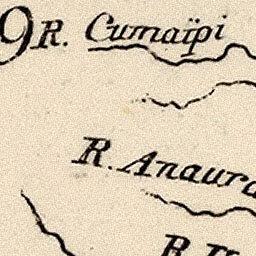 9 R. Cumaïpi
R. Anaura
R.